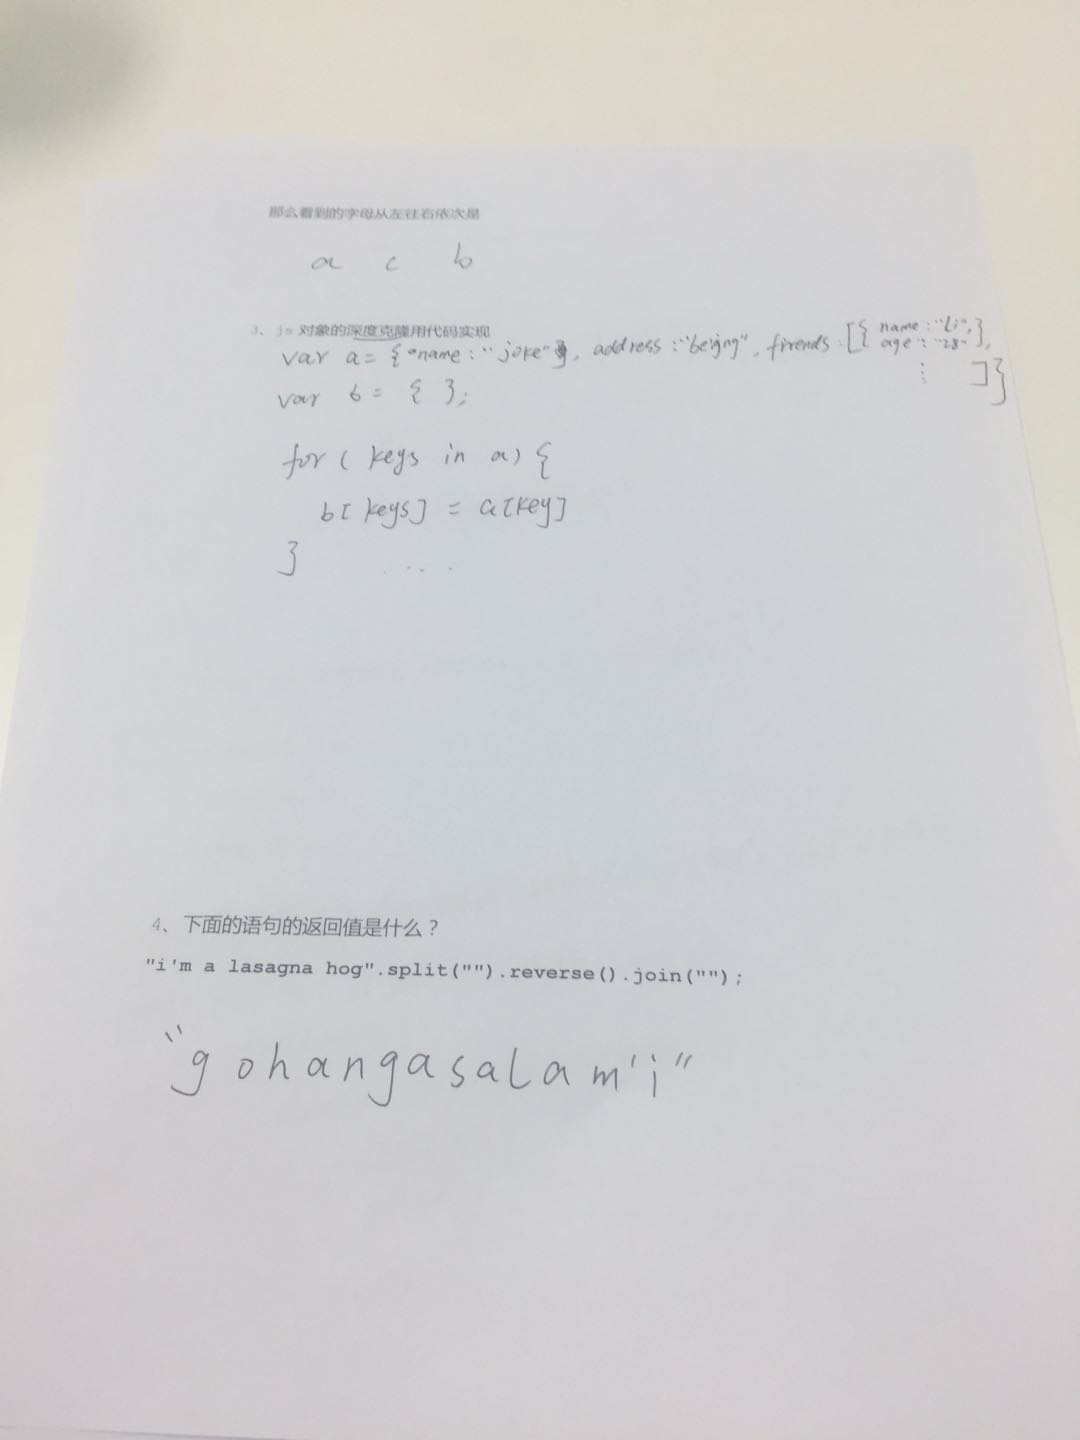 那么看到的字母从左往右依次是
a c b
3、js 对象的深度克隆用代码实现
var a = { name : "joke", address : "beijng", firends : [{ name : "Li",
age : "28" },
⋮ ]}
var b = { };
for ( keys in a) {
b[ keys] = a[key]
}
....
4、下面的语句的返回值是什么？
"i'm a lasagna hog".split("").reverse().join("");
"gohangasalam'i"